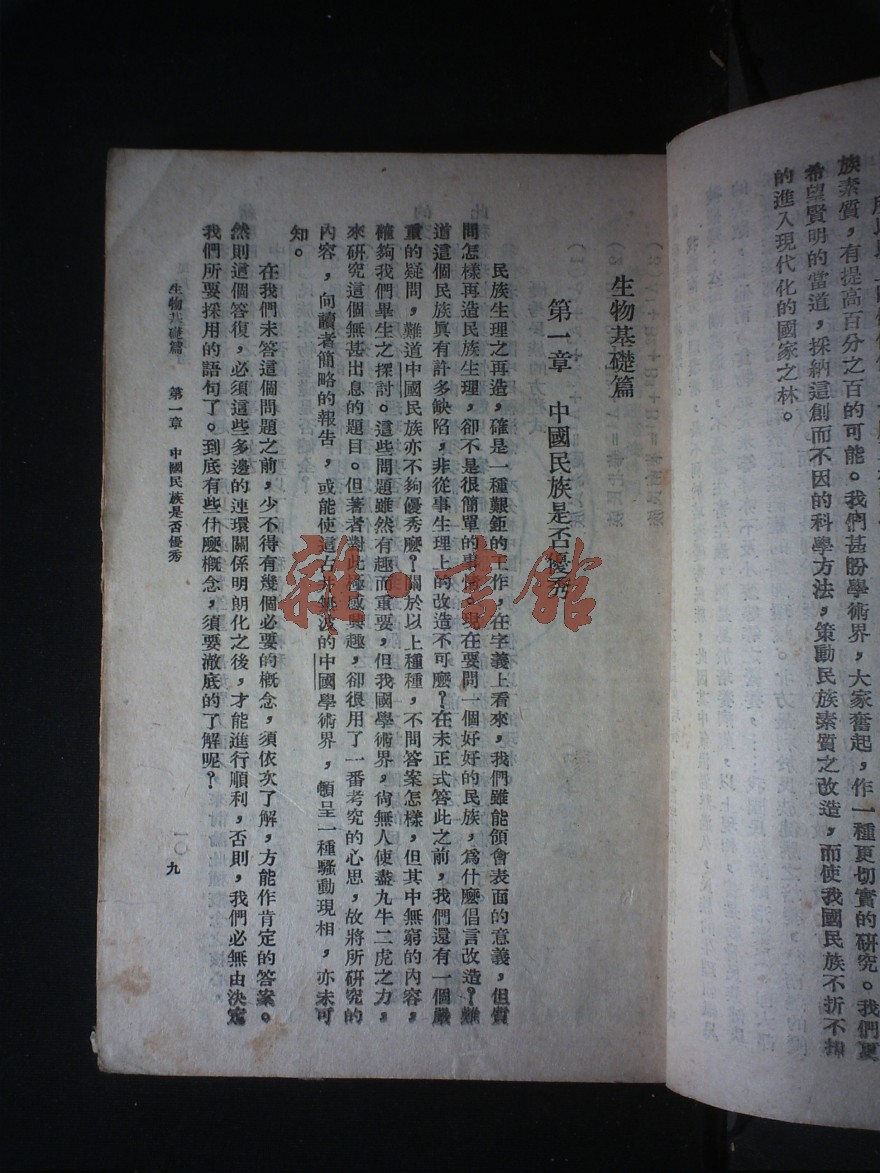 族素質，有提高百分之百的可能。我們甚盼學術界，大家奮起，作一種更切實的研究。我們更
希望賢明的當道，採納這創而不因的科學方法，策動民族素質之改造，而使我國民族不折不扣
的進入現代化的國家之林。
生物基礎篇
第一章　中國民族是否優秀
民族生理之再造，確是一種艱鉅的工作，在字義上看來，我們雖能領會表面的意義，但質
問怎樣再造民族生理，卻不是很簡單的事情。現在要問一個好好的民族，爲什麽倡言改造？難
道這個民族眞有許多缺陷，非從事生理上的改造不可麽？在未正式答此之前，我們還有一個嚴
重的疑問，難道中國民族亦不夠優秀麽？關於以上種種，不問答案怎樣，但其中無窮的內容，
確夠我們畢生之探討。這些問題雖然有趣而重要，但我國學術界，尙無人使盡九牛二虎之力，
來研究這個無甚出息的題目。但著者對此極感興趣，卻很用了一番考究的心思，故將所研究的
內容，向讀者簡略的報告，或能使這古井無波的中國學術界，頓呈一種騷動現相，亦未可
知。
在我們未答這個問題之前，少不得有幾個必要的槪念，須依次了解，方能作肯定的答案。
然則這個答復，必須這些多邊的連環關係明朗化之後，才能進行順利，否則，我們必無由決定
我們所要採用的語句了。到底有些什麽槪念，須要澈底的了解呢？
生物基礎篇　第一章　中國民族是否優秀
一〇九
雜·書館